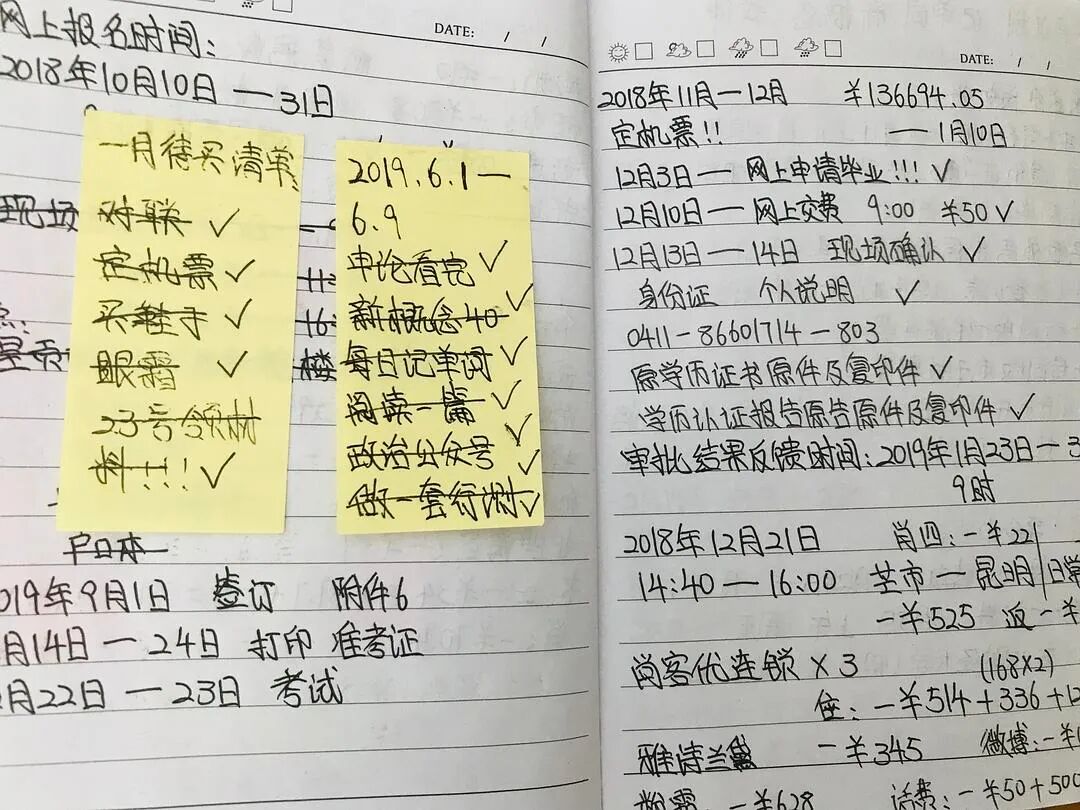 网上报名时间:
DATE: / /
2018年10月10日 — 31日
一月待买清单:
对联 ✓
定机票 ✓
买鞋手 ✓
眼霜 ✓
23号领材
料!!! ✓
2019.6.1 —
6.9
申论看完 ✓
新概念40 ✓
每日记单词 ✓
阅读一篇 ✓
政治公众号 ✓
做一套行测 ✓
现场
16
楼
户口本
2019年9月1日 签订 附件6
月14日 — 24日 打印 准考证
月22日 — 23日 考试
DATE: / /
2018年11月 — 12月 ¥136694.05
定机票!! — 1月10日
12月3日 — 网上申请毕业!!! ✓
12月10日 — 网上交费 9:00 ¥50 ✓
12月13日 — 14日 现场确认 ✓
身份证 个人说明 ✓
0411-86601714-803
原学历证书原件及复印件 ✓
学历认证报告原告原件及复印件 ✓
审批结果反馈时间:2019年1月23日 — 3
9时
2018年12月21日 肖四: -¥22
14:40 — 16:00 芒市 — 昆明 日常
-¥525 返 -¥
尚客优连锁 × 3 (168×2)
住: -¥514+336+12
雅诗兰黛 -¥345 微博: -¥
粉霜 -¥628 话费: -¥50+500